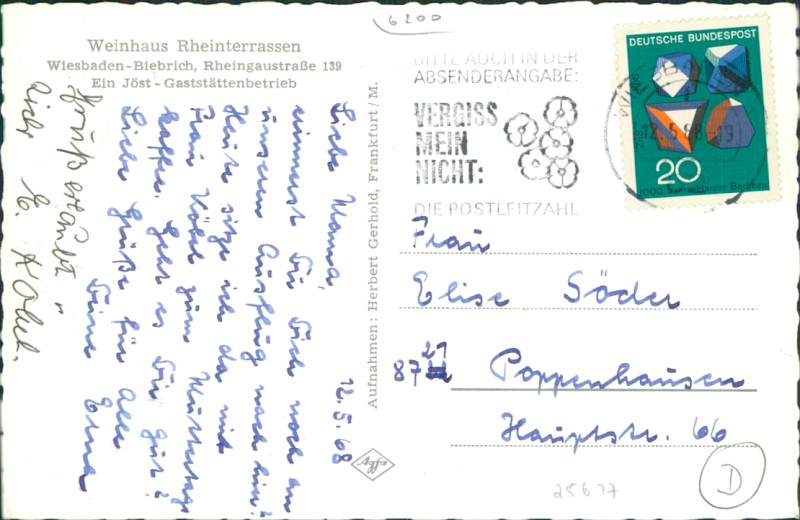 6200
Weinhaus Rheinterrassen
Wiesbaden-Biebrich, Rheingaustraße 139
Ein Jöst-Gaststättenbetrieb
12.5.68
Liebe Mama,
erinnerst Du Dich noch an
unseren Ausflug nach hier?
Heute sitze ich da mit
Frau Köbel zum Muttertags
kaffee. Geht es Dir gut?
Liebe Grüße für alle
Deine Erna
Gruß erlaubt
sich E. Köbel.
Aufnahmen: Herbert Gerhold, Frankfurt/M.
Agfa
BITTE AUCH IN DER
ABSENDERANGABE:
VERGISS
MEIN
NICHT:
DIE POSTLEITZAHL
DEUTSCHE BUNDESPOST
20
1000 Harzer Bergbau
12.5.68-19
Frau
Elise Söder
8721 Poppenhausen
Hauptstr. 66
D
25677